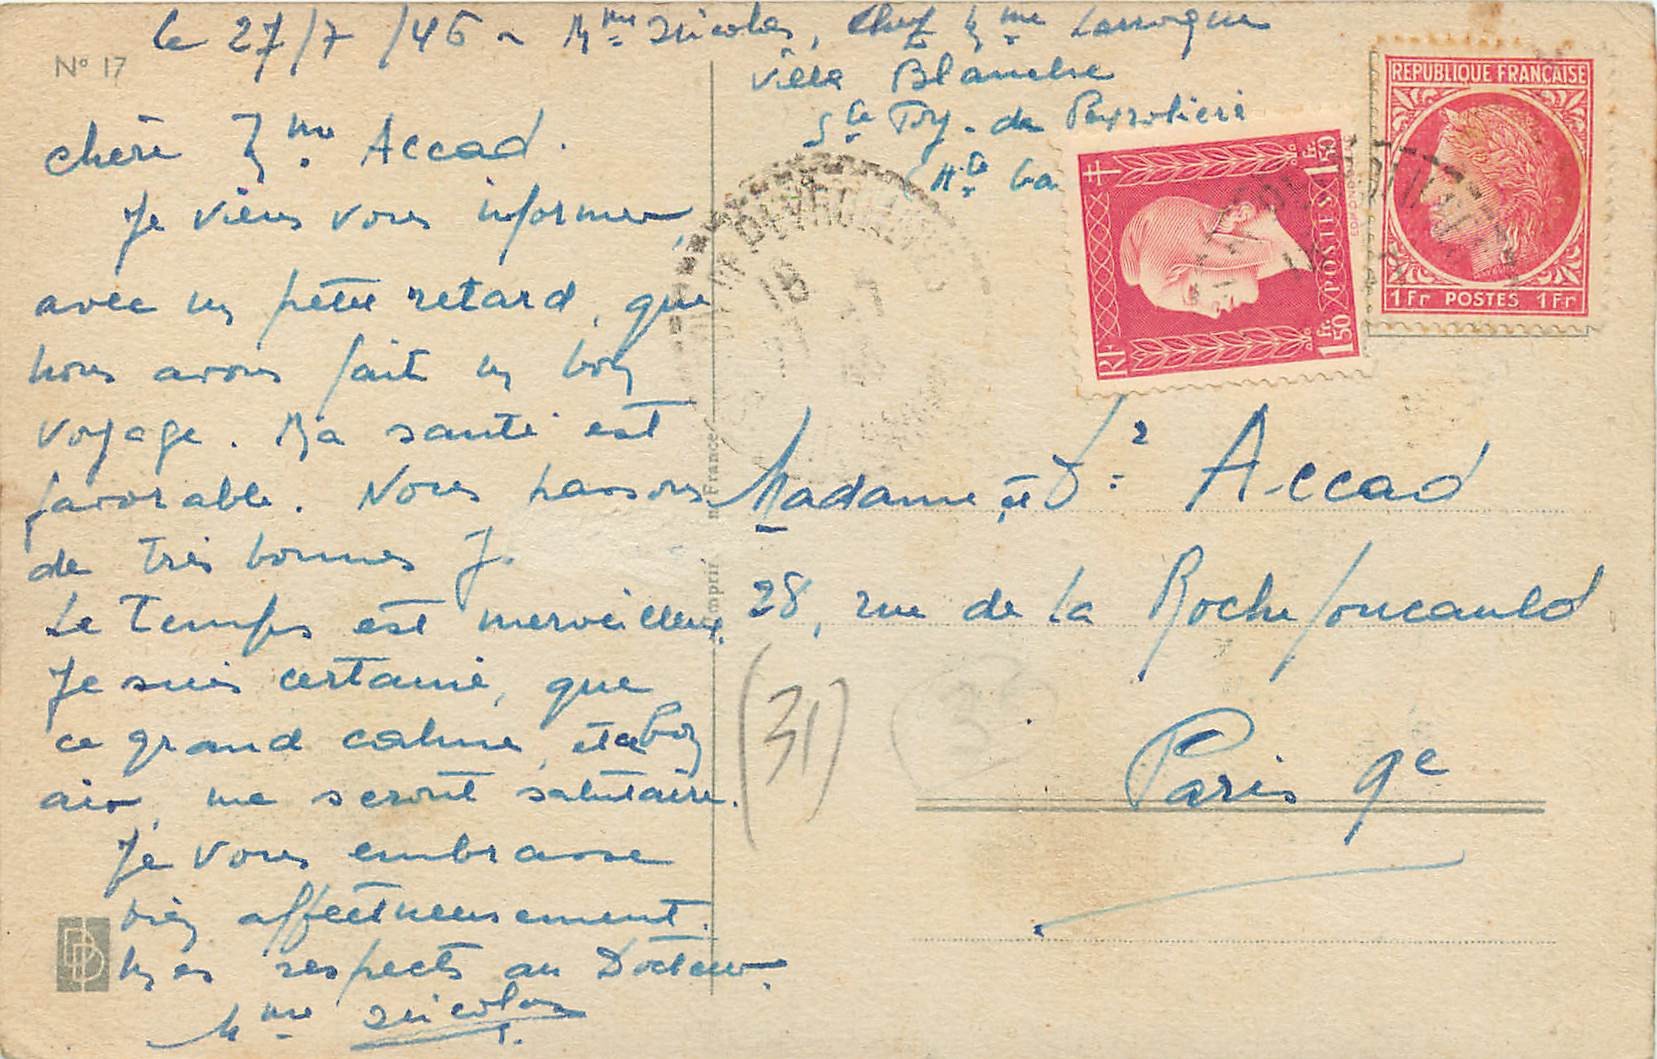 le 27/7/46 ~ Mme Nicolas, chez Mme Larroque
Villa Blanche
Ste Foy-de Peyrolière
Hte Ga
N° 17
chère Mme Accad.
Je viens vous informer,
avec un petit retard, que
nous avons fait un bon
voyage. Ma santé est
favorable. Nous passons
de très bonnes J.
Le Temps est merveilleux.
Je suis certaine, que
ce grand calme, et ce bon
air, me seront salutaire.
Je vous embrasse
bien affectueusement.
Mes respects au Docteur.
Mme Nicolas
REPUBLIQUE FRANÇAISE
1Fr POSTES 1Fr
RF 1Fr.50 POSTES 1Fr.50
Madame et Dr Accad
28, rue de La Rochefoucauld
Paris 9e
(31)
Imprimé en France